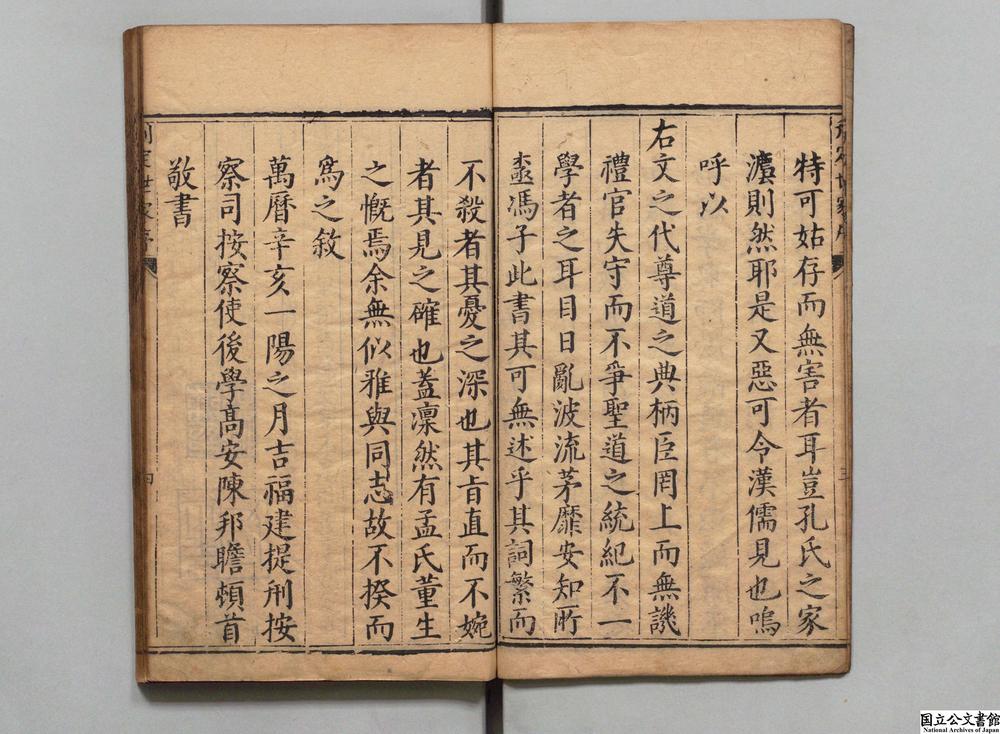 特可姑存而無害者耳豈孔氏之家
瀍則然耶是又惡可令漢儒見也嗚
呼以
右文之代尊道之典柄臣罔上而無譏
禮官失守而不爭聖道之統紀不一
學者之耳目日亂波流茅靡安知所
馮子此書其可無述乎其詞繁而
不殺者其憂之深也其旨直而不婉
者其見之確也蓋凛然有孟氏董生
之慨焉余無似雅與同志故不揆而
為之敘
萬曆辛亥一陽之月吉福建提刑按
察司按察使後學高安陳邦瞻頓首
敬書
三
四
国立公文書館
National Archives of Japan